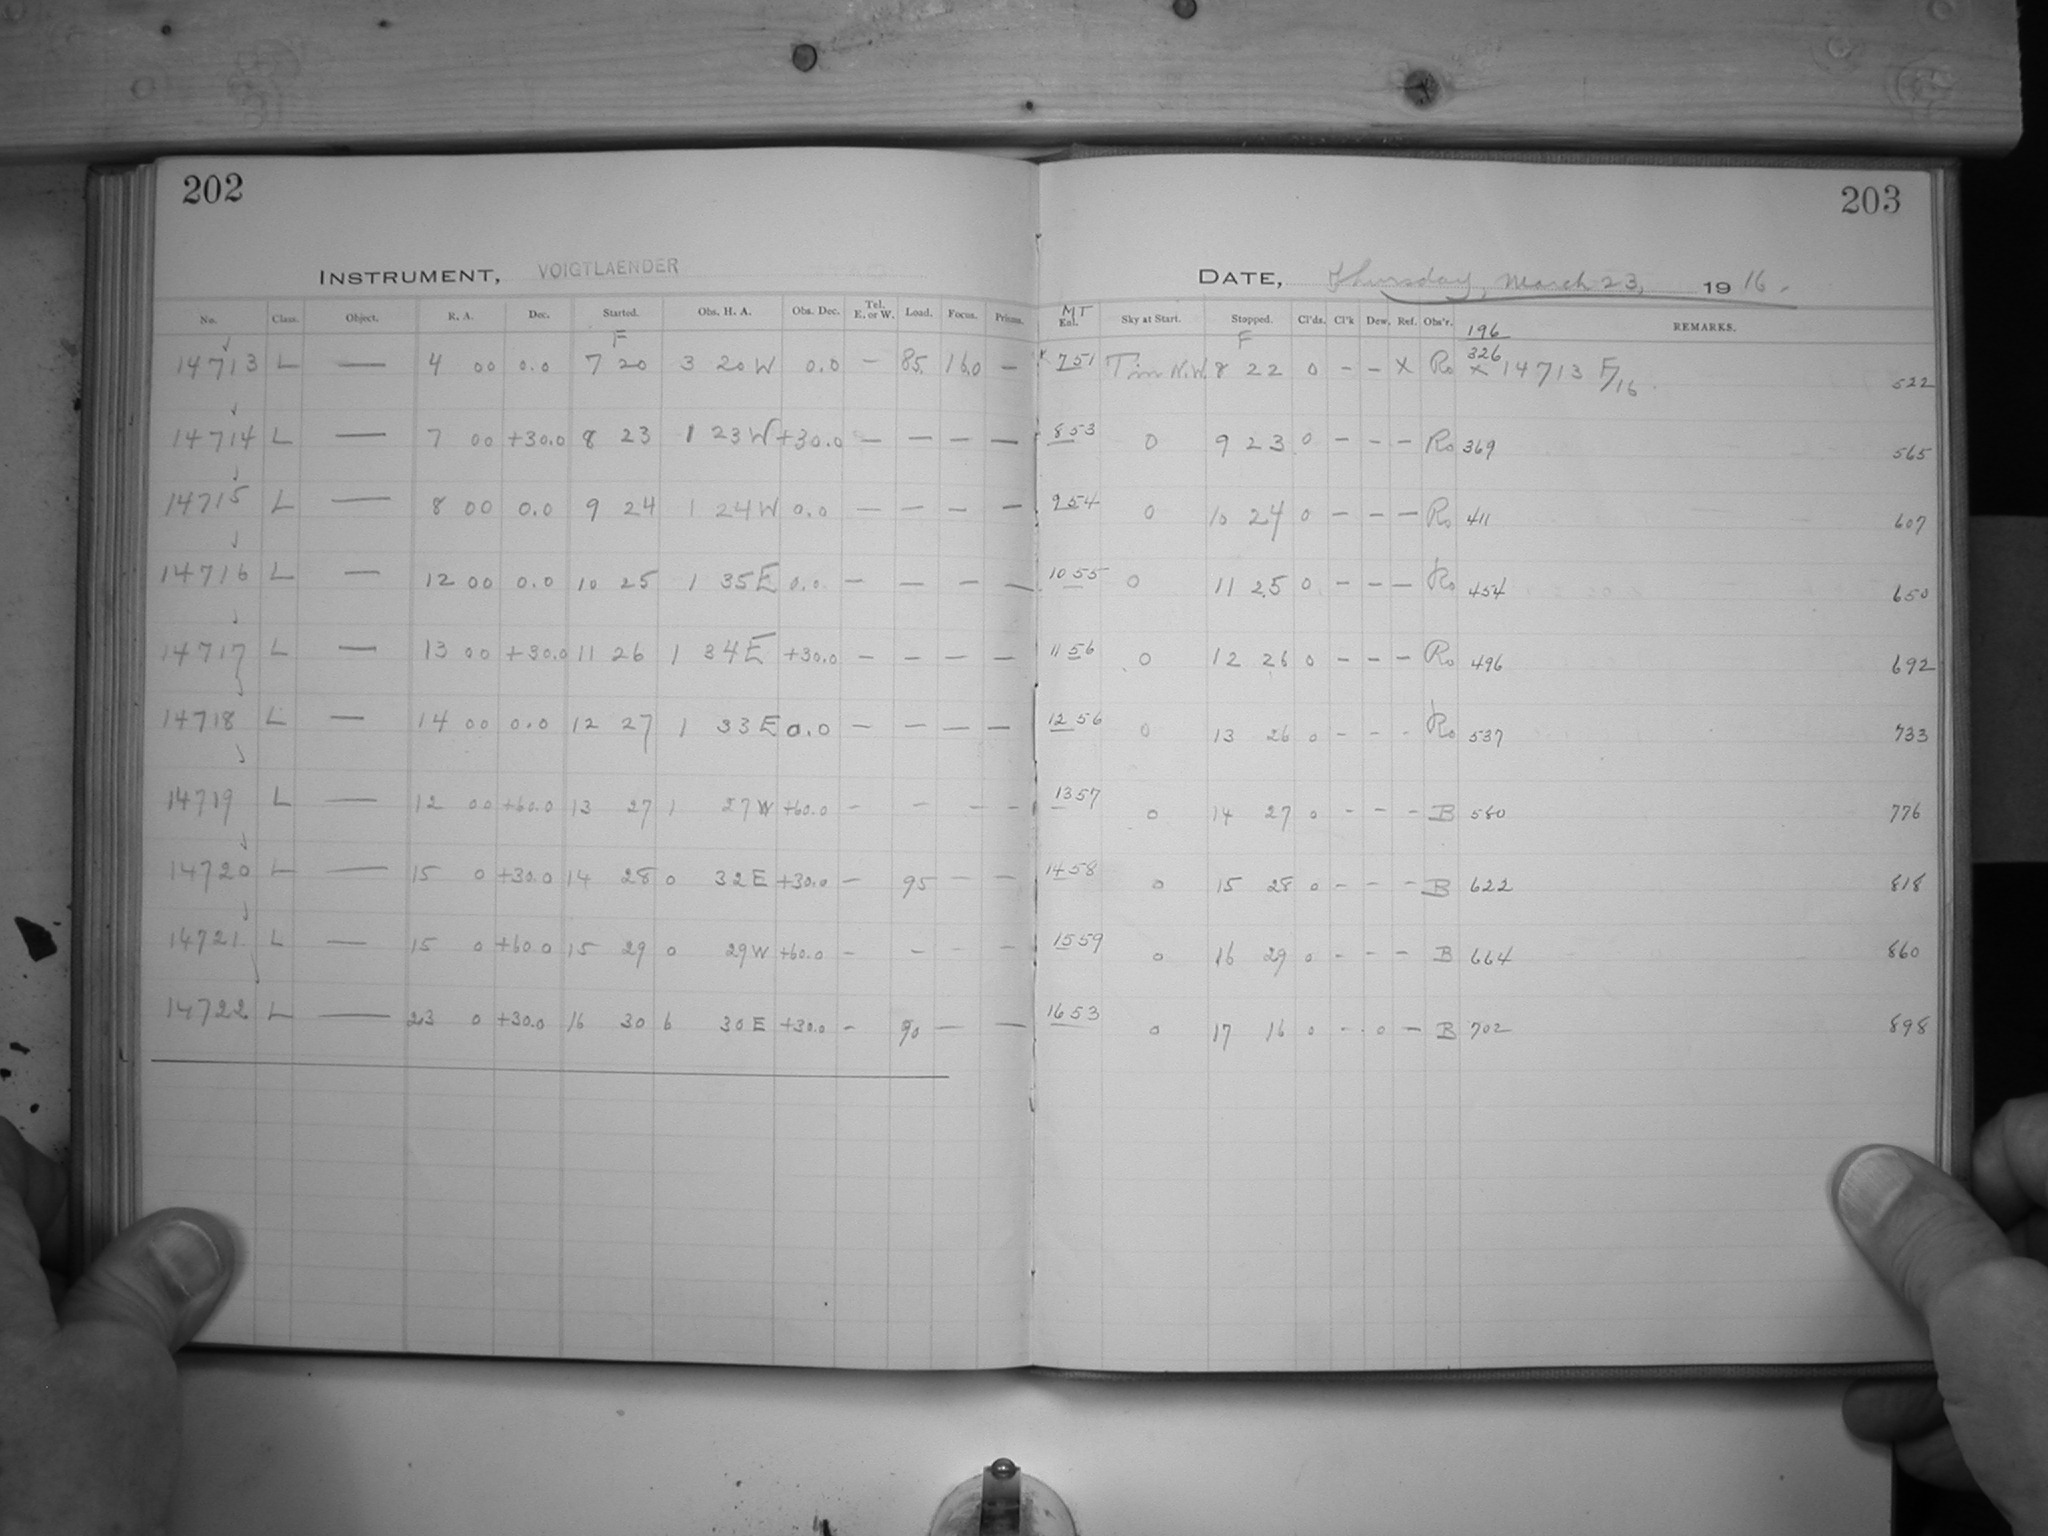 202
INSTRUMENT, VOIGTLAENDER
No. Class. Object. R. A. Dec. Started. Obs. H. A. Obs. Dec. Tel. E. or W. Load. Focus. Prisms.
F
14713 L — 4 00 0.0 7 20 3 20 W 0.0 — 85. 16.0 —
14714 L — 7 00 +30.0 8 23 1 23 W +30.0 — — — —
14715 L — 8 00 0.0 9 24 1 24 W 0.0 — — — —
14716 L — 12 00 0.0 10 25 1 35 E 0.0 — — — —
14717 L — 13 00 +30.0 11 26 1 34 E +30.0 — — — —
14718 L — 14 00 0.0 12 27 1 33 E 0.0 — — — —
14719 L — 12 00 +60.0 13 27 1 27 W +60.0 — — — —
14720 L — 15 0 +30.0 14 28 0 32 E +30.0 — 95 — —
14721 L — 15 0 +60.0 15 29 0 29 W +60.0 — — — —
14722 L — 23 0 +30.0 16 30 6 30 E +30.0 — 90 — —
203
DATE, Thursday, March 23, 1916.
MT
Enl. Sky at Start. Stopped. Cl'ds. Cl'k Dew. Ref. Obs'r. REMARKS.
F 196
326
x 751 N.W. 8 22 0 — — X Ro x 14713 F/16. 522
853 0 9 23 0 — — — Ro 369 565
954 0 10 24 0 — — — Ro 411 607
1055 0 11 25 0 — — — Ro 454 650
1156 0 12 26 0 — — — Ro 496 692
1256 0 13 26 0 — — - Ro 537 733
1357 0 14 27 0 — — — B 580 776
1458 0 15 28 0 — — — B 622 818
1559 0 16 29 0 — — — B 664 860
1653 0 17 16 0 — 0 — B 702 898